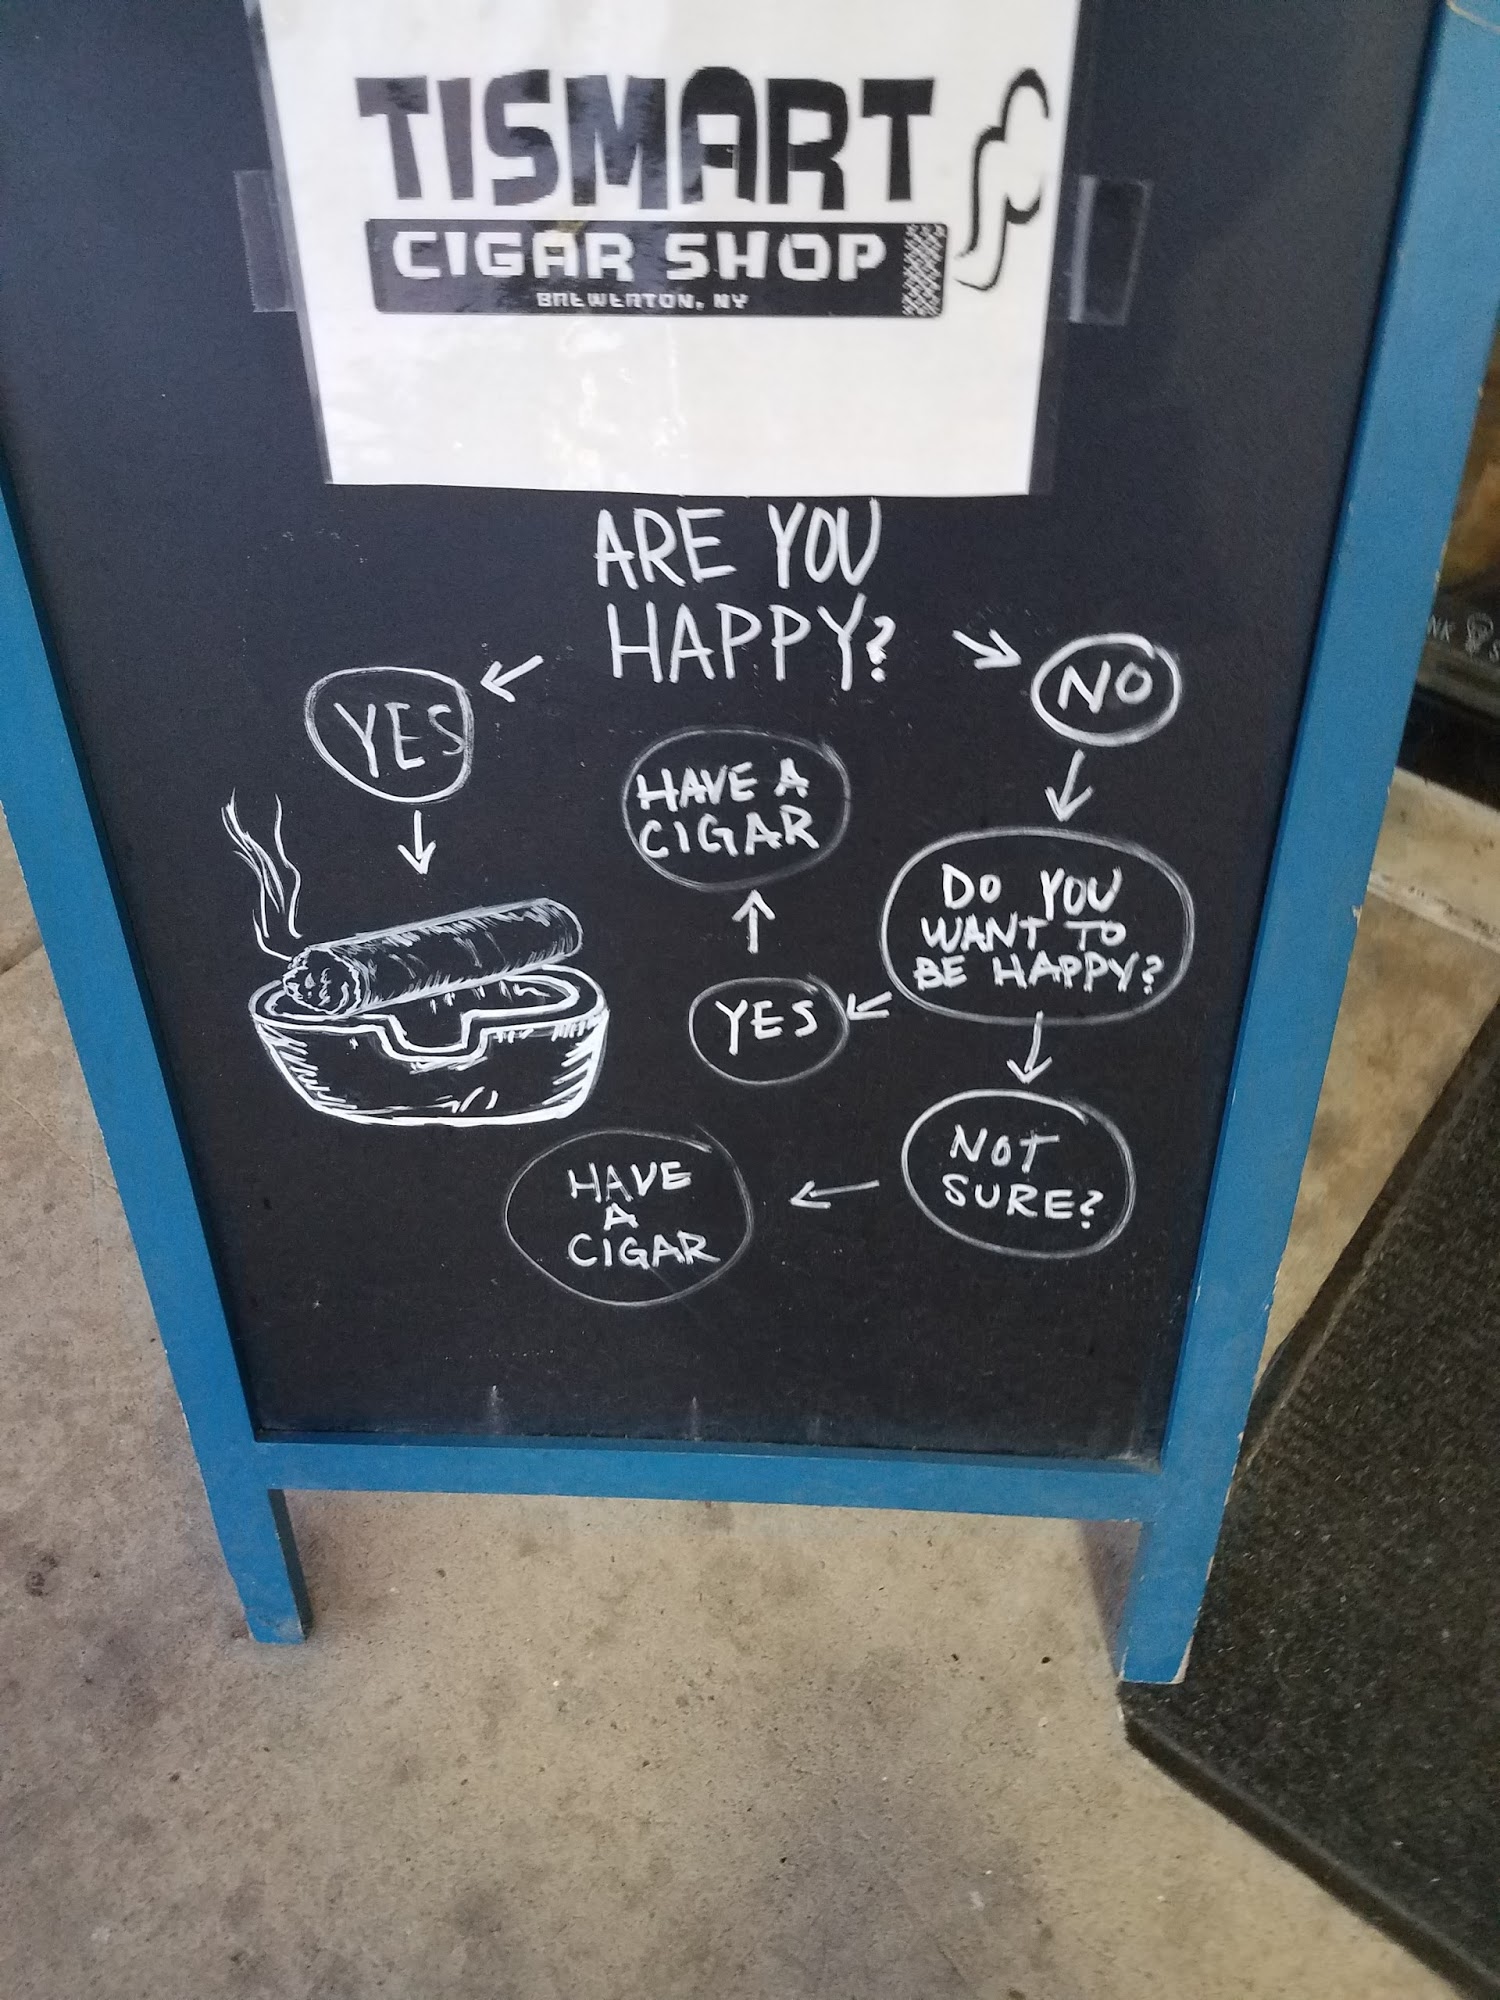 TISMART
CIGAR SHOP
BREWERTON, NY
ARE YOU
HAPPY?
YES
NO
HAVE A
CIGAR
DO YOU
WANT TO
BE HAPPY?
YES
NOT
SURE?
HAVE
A
CIGAR